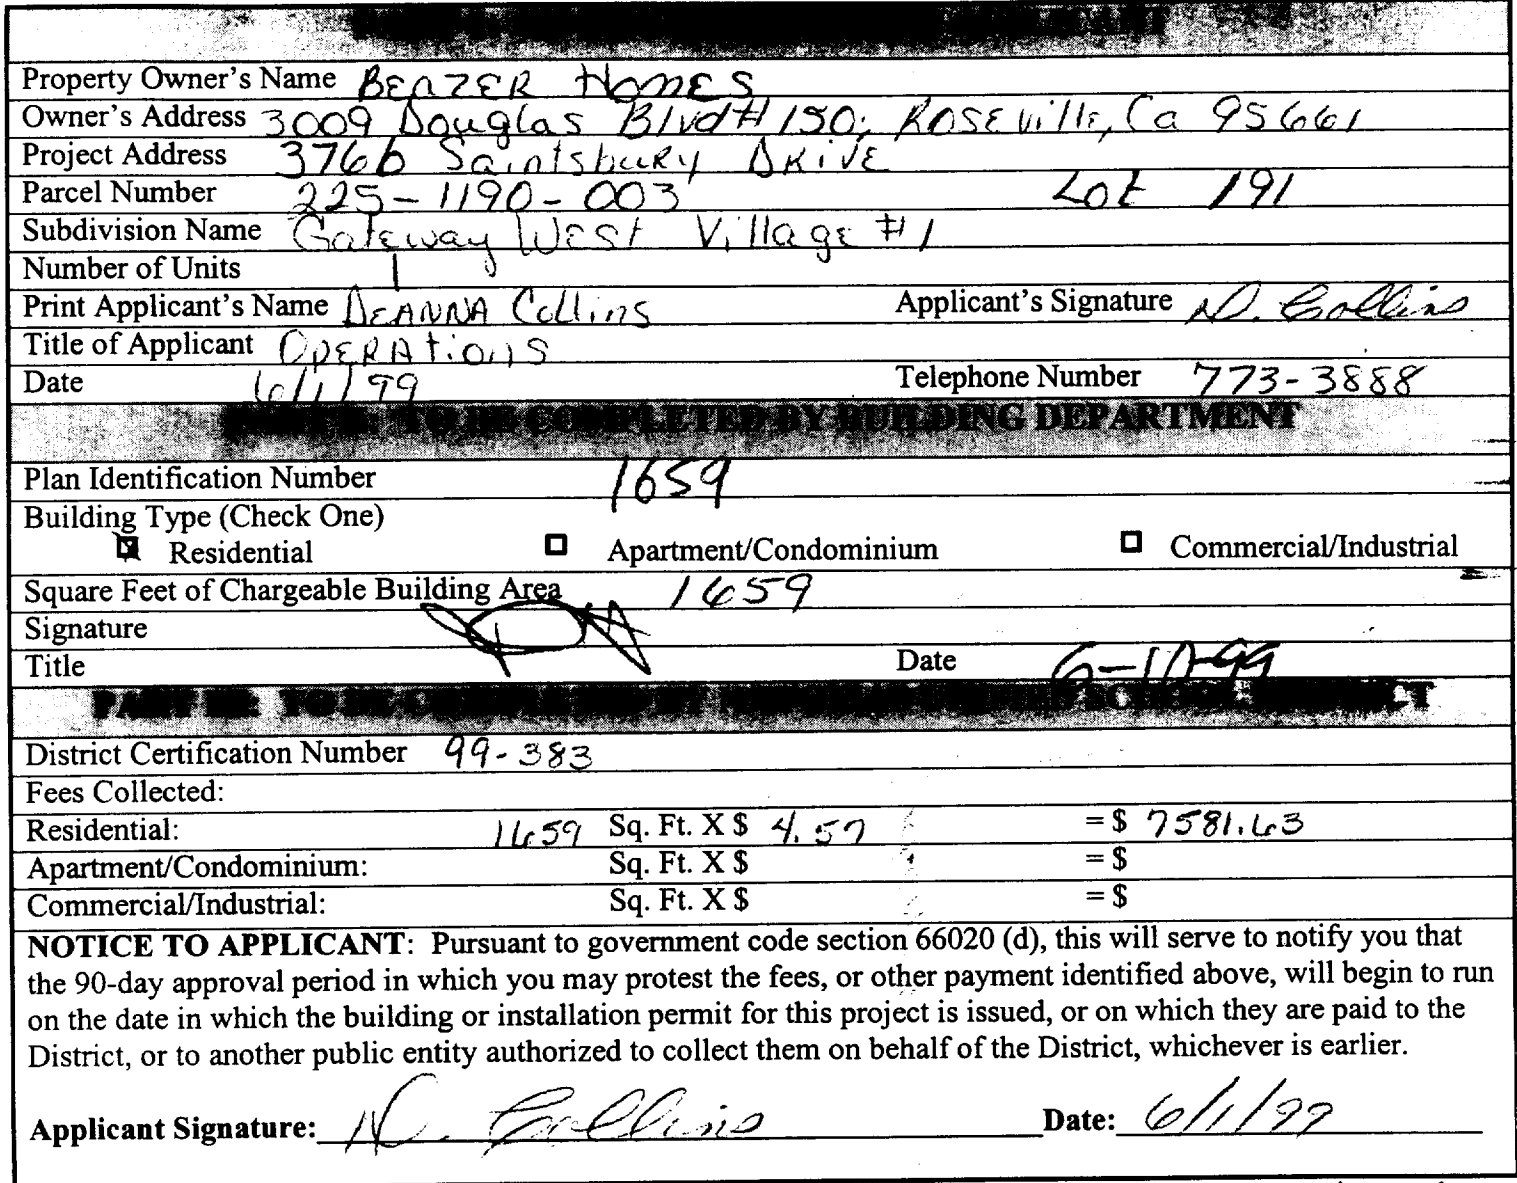 APPLICANT
Property Owner's Name BEAZER HOMES
Owner's Address 3009 Douglas Blvd # 150, ROSEVille, Ca 95661
Project Address 3766 Saintsbury DRIVE
Parcel Number 225-1190-003 Lot 191
Subdivision Name Gateway WEST VillagE #1
Number of Units 1
Print Applicant's Name DEANNA Collins Applicant's Signature D. Collins
Title of Applicant OPERAtiONS
Date 6/1/99 Telephone Number 773-3888
TO BE COMPLETED BY BUILDING DEPARTMENT
Plan Identification Number 1659
Building Type (Check One)
Residential Apartment/Condominium Commercial/Industrial
Square Feet of Chargeable Building Area 1659
Signature
Title Date 6-10-99
PART III: TO BE COMPLETED BY UNIFIED SCHOOL DISTRICT
District Certification Number 99-383
Fees Collected:
Residential: 1659 Sq. Ft. X $ 4.57 = $ 7581.63
Apartment/Condominium: Sq. Ft. X $ = $
Commercial/Industrial: Sq. Ft. X $ = $
NOTICE TO APPLICANT: Pursuant to government code section 66020 (d), this will serve to notify you that
the 90-day approval period in which you may protest the fees, or other payment identified above, will begin to run
on the date in which the building or installation permit for this project is issued, or on which they are paid to the
District, or to another public entity authorized to collect them on behalf of the District, whichever is earlier.
Applicant Signature: D. Collins Date: 6/1/99